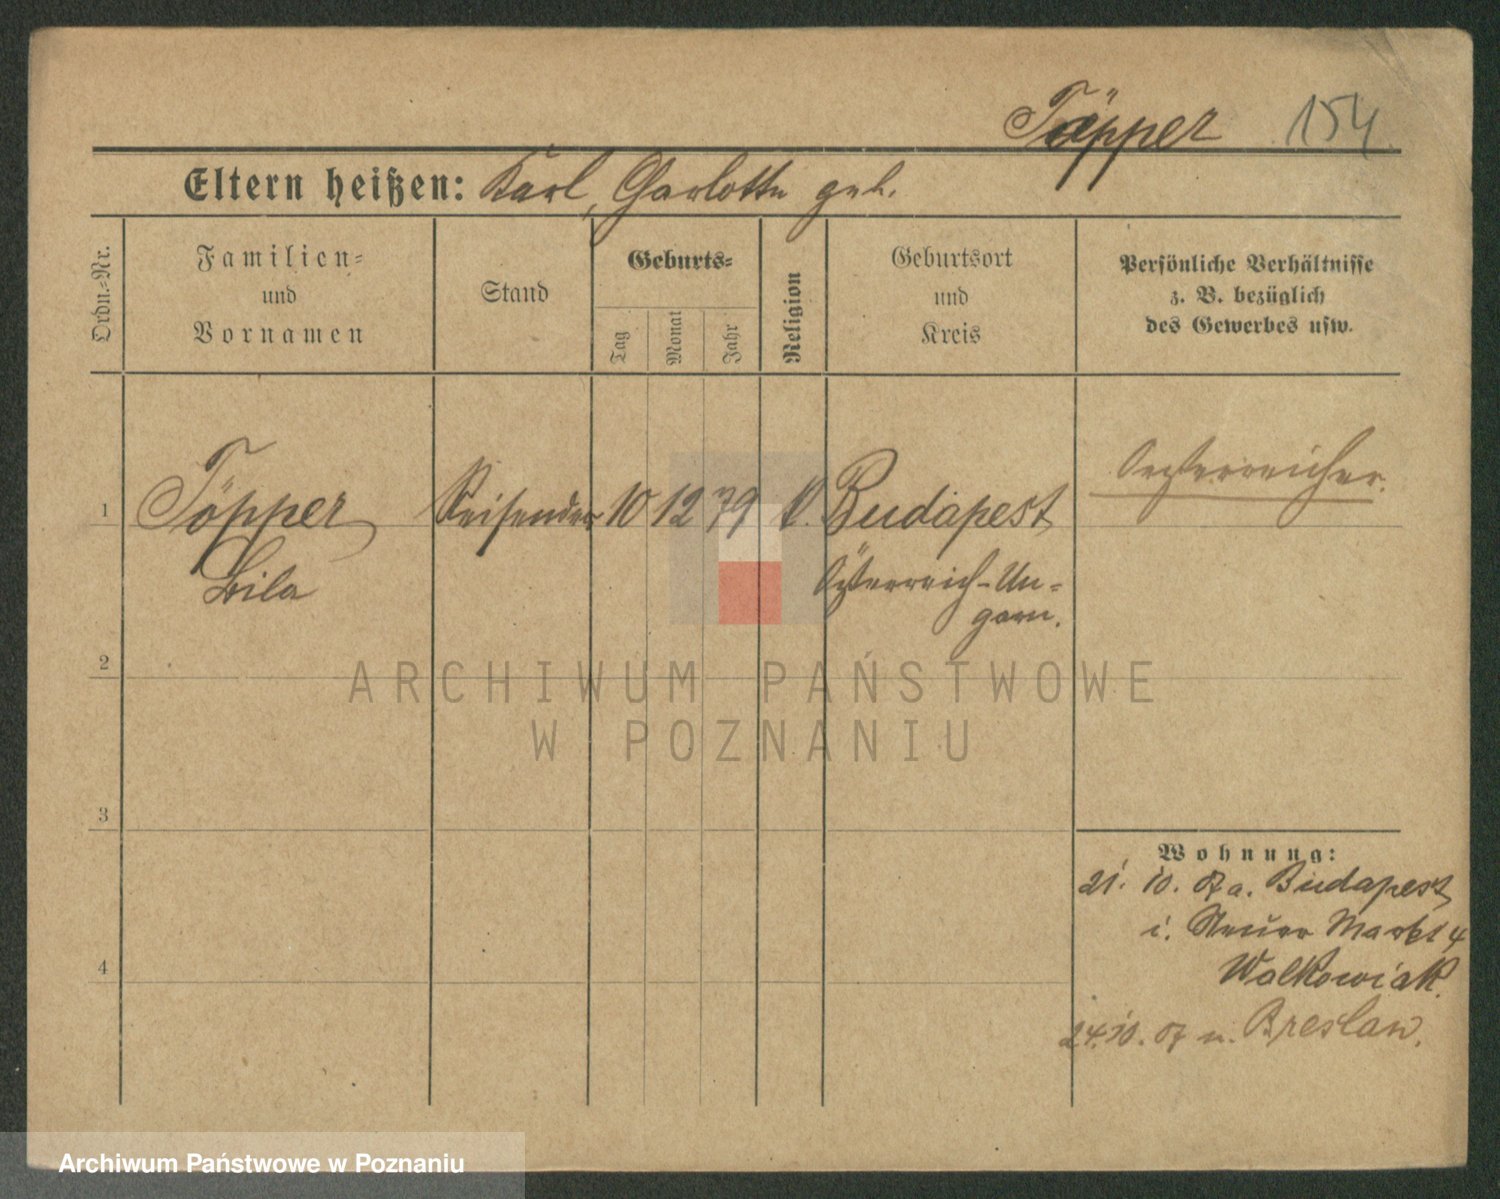 Töpper 154.
Eltern heißen: Karl, Charlotte geb.
Ordn.-Nr.
Familien-
und
Vornamen
Stand
Geburts-
Tag
Monat
Jahr
Religion
Geburtsort
und
Kreis
Persönliche Verhältnisse
z. B. bezüglich
des Gewerbes usw.
1 Töpper Reisender 10 12 79 k. Budapest Oesterreicher.
Österreich-Un-
garn.
2
3
4
Wohnung:
21. 10. 07 a. Budapest
i. Neuer Markt 4
Walkowiak.
24.10. 07 n. Breslau.
ARCHIWUM PAŃSTWOWE
W POZNANIU
Archiwum Państwowe w Poznaniu